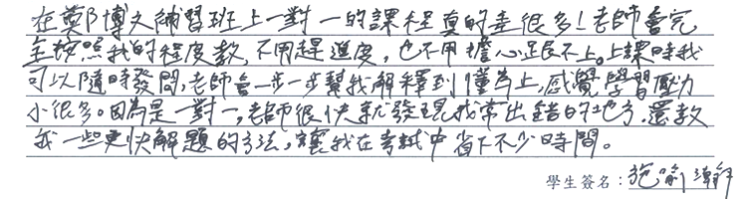 在鄭博文補習班上一對一的課程真的差很多!老師會完
全按照我的程度教,不用趕進度,也不用擔心跟不上。上課時我
可以隨時發問,老師會一步一步幫我解釋到懂為止,感覺學習壓力
小很多。因為是一對一,老師很快就發現我常出錯的地方,還教
我一些更快解題的方法,讓我在考試中省下不少時間。
學生簽名:施喻